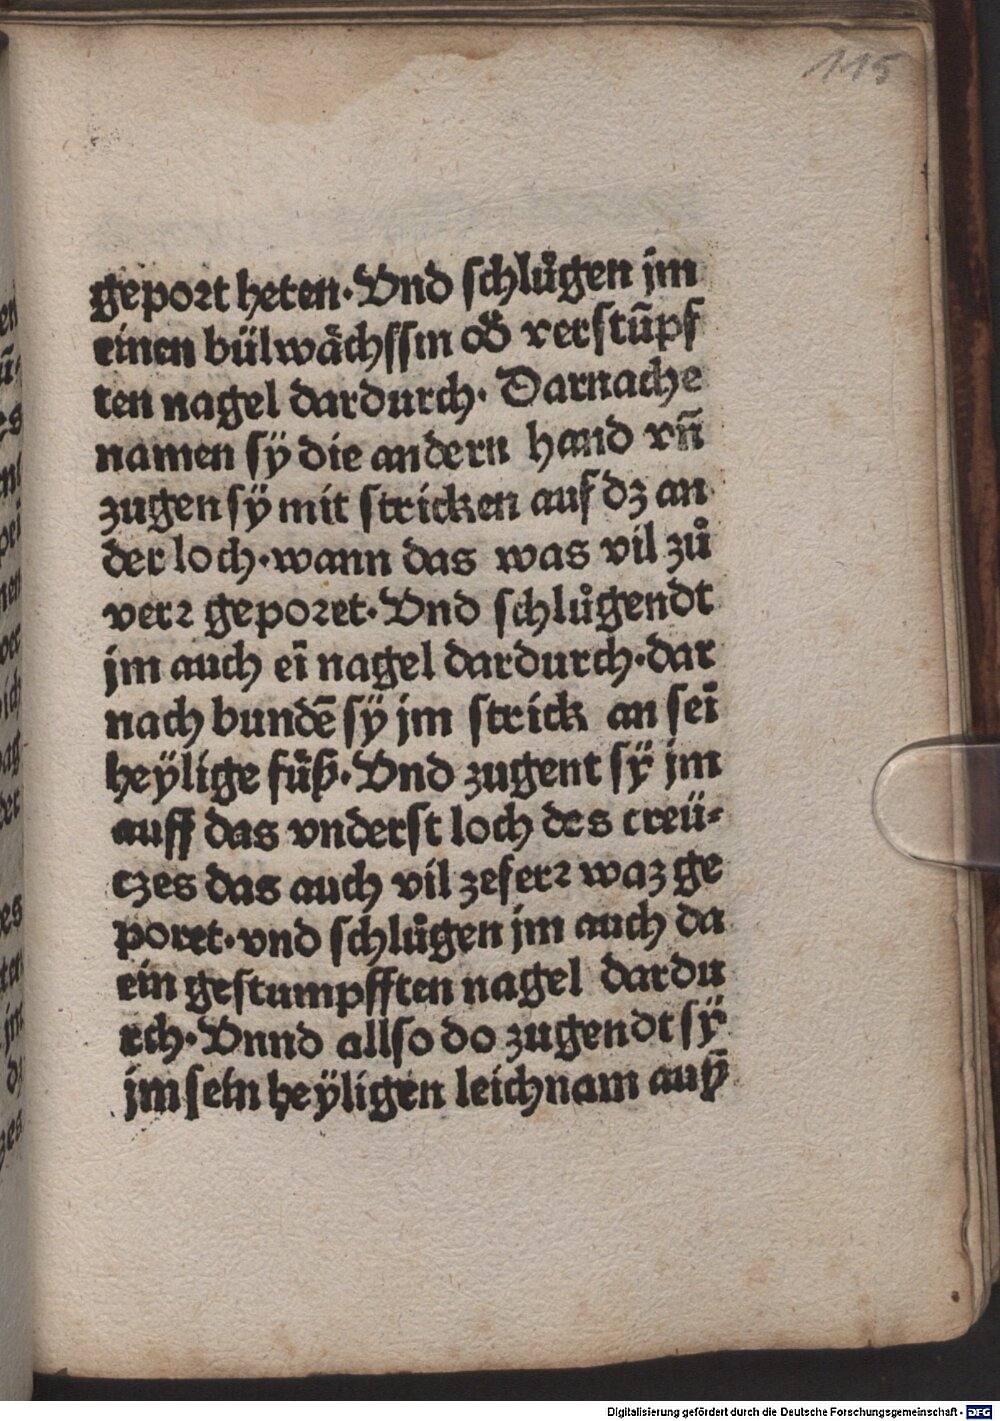 115
geport heten. Vnd schlůgen jm
einen bülwåchssin od̕ verstūpf
ten nagel dardurch. Darnache
namen sÿ die andern hand vn̄
zugen sÿ mit stricken auf dz an
der loch. wann das was vil zů
verr geporet. Vnd schlůgendt
jm auch eī nagel dardurch. dar
nach bundē sÿ jm strick an seī
heÿlige fůß. Vnd zugent sÿ jm
auff das vnderst loch des creü⸗
czes das auch vil zeferr waz ge
poret. vnd schlůgen jm auch da
ein gestumpfften nagel dardu
rch. Vnnd allso do zugendt sÿ
jm sein heÿligen leichnam auß
Digitalisierung gefördert durch die Deutsche Forschungsgemeinschaft - DFG